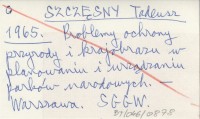 SZCZĘSNY Tadeusz
1965. Problemy ochrony
przyrody i krajobrazu w
planowaniu i urządzaniu
parków narodowych. –
Warszawa. SGGW.